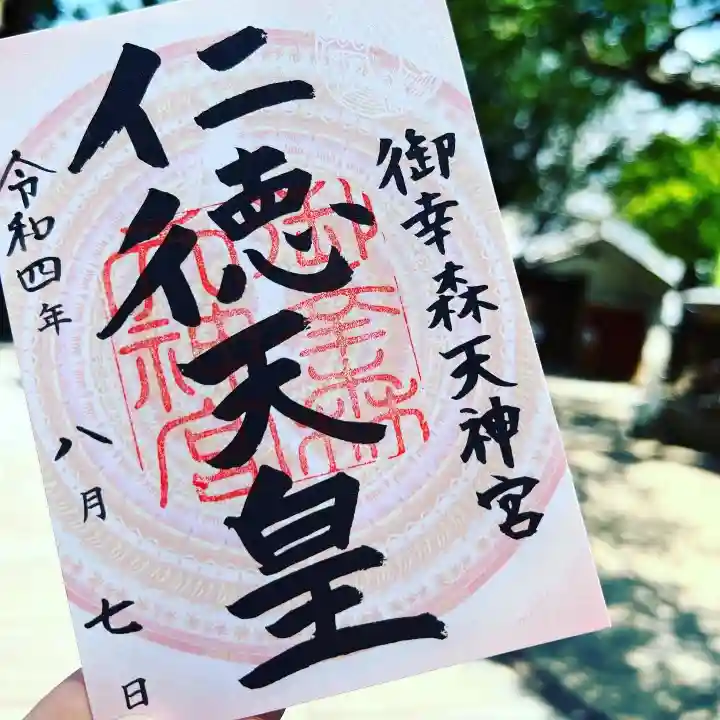 御幸森天神宮
仁徳天皇
御幸森
天神宮
令和四年
八月
七日